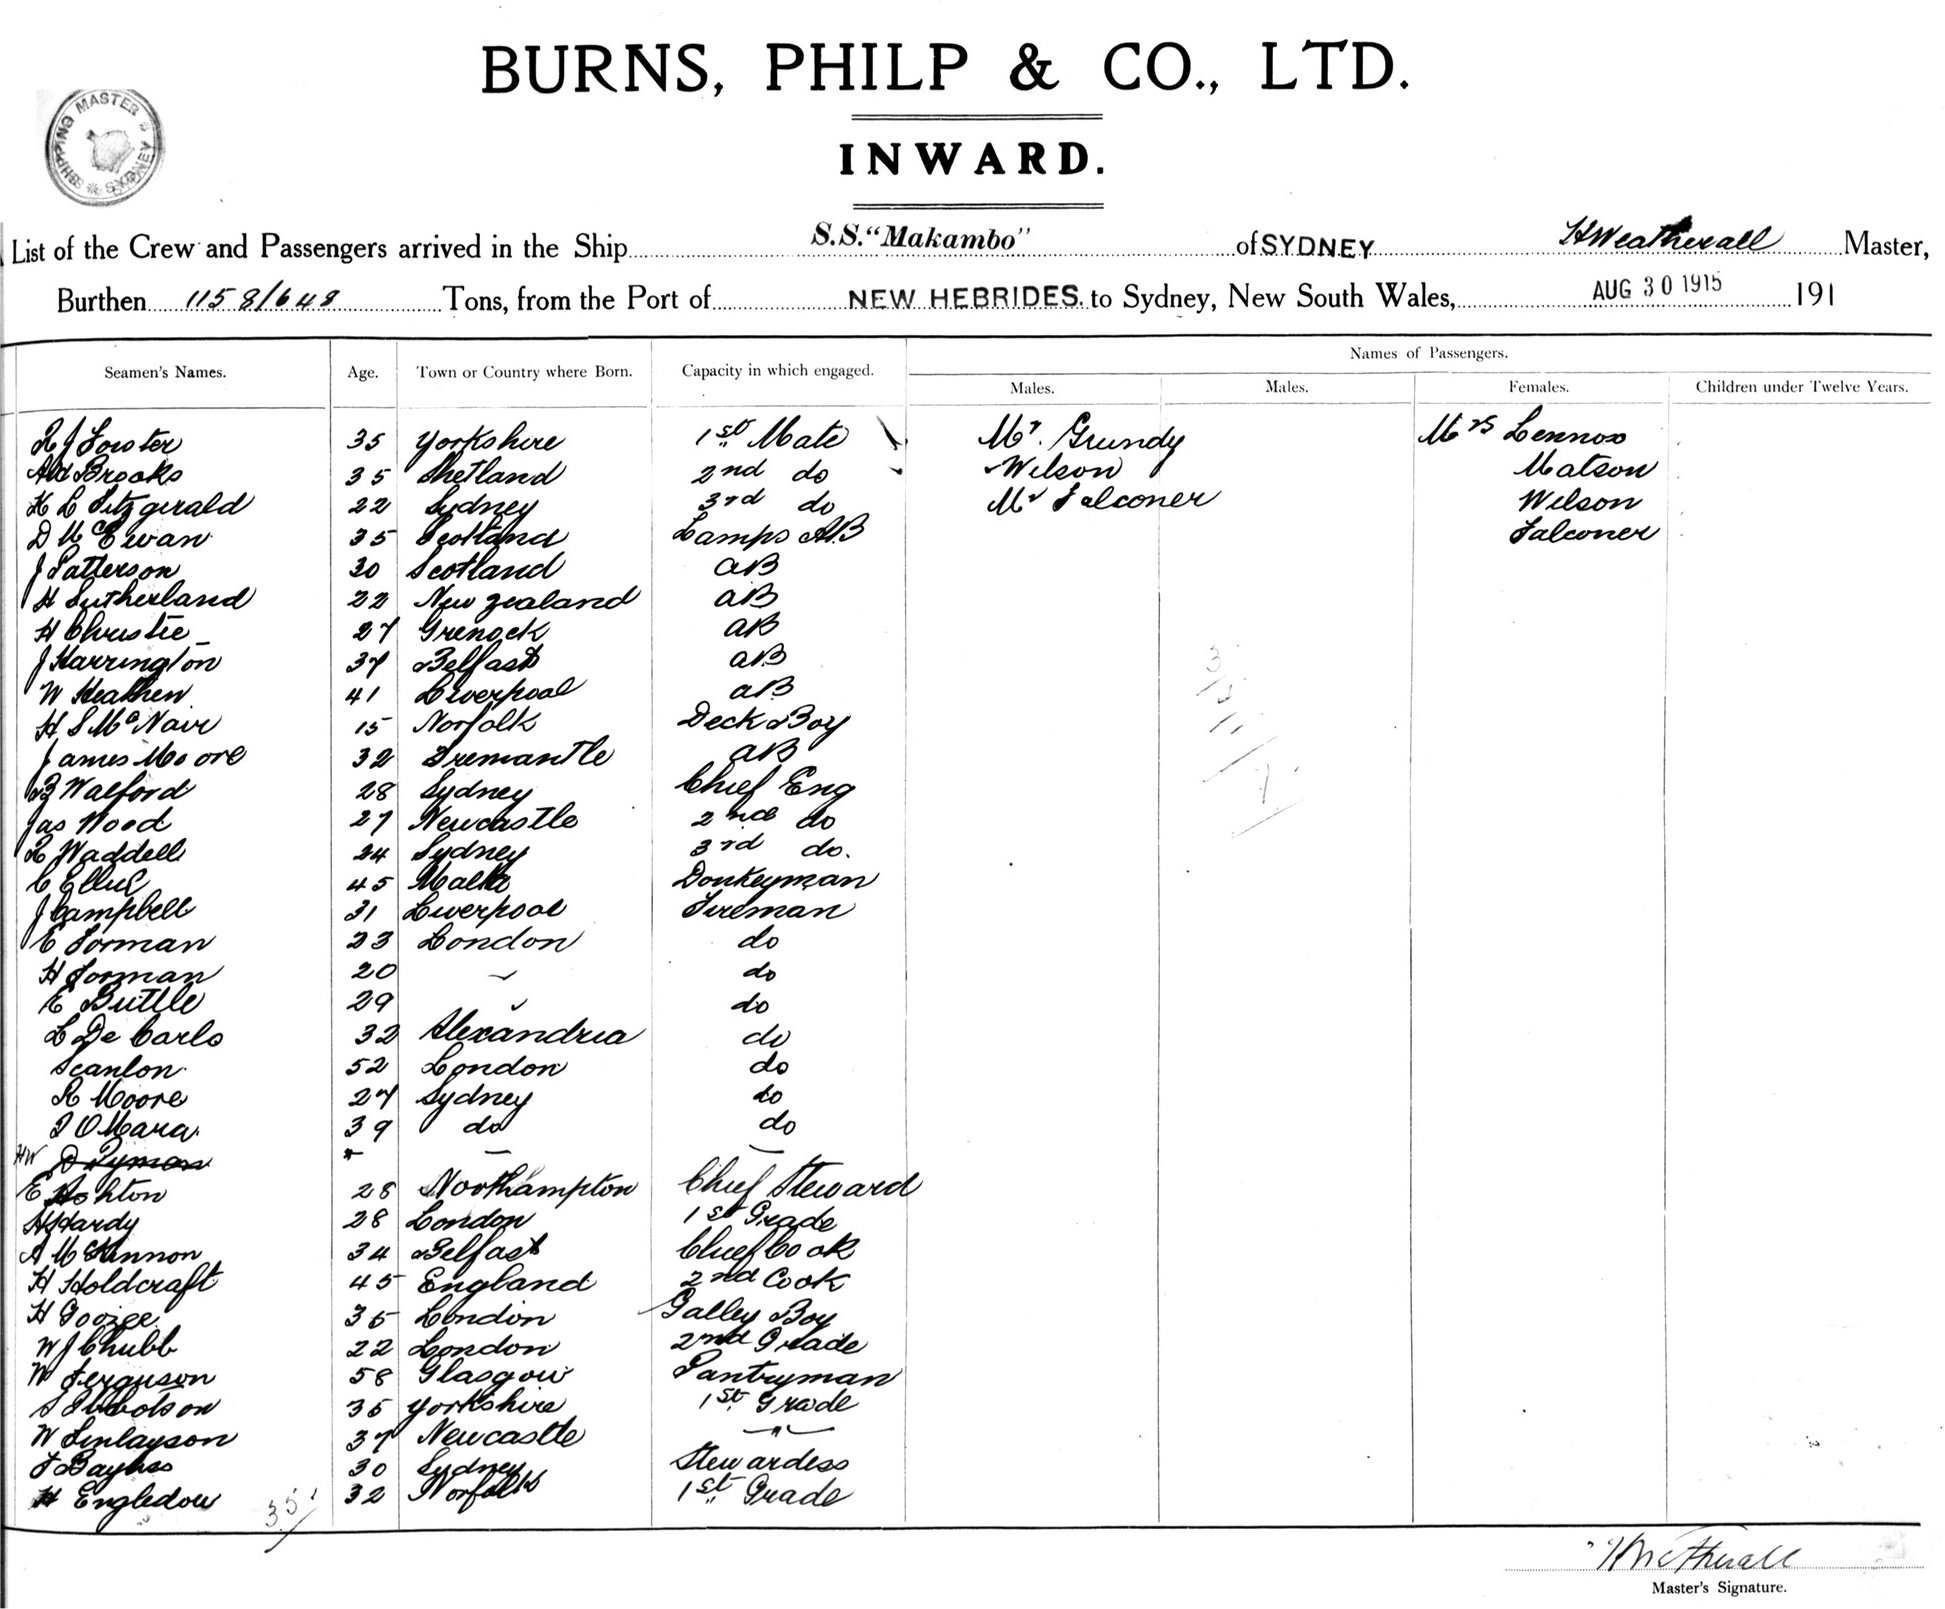 BURNS, PHILP & CO., LTD.
INWARD.
SHIPPING MASTER SYDNEY
List of the Crew and Passengers arrived in the Ship S.S. "Makambo" of SYDNEY H Weatherall Master,
Burthen 1158/648 Tons, from the Port of NEW HEBRIDES. to Sydney, New South Wales, AUG 30 1915 191
Names of Passengers.
Seamen's Names. Age. Town or Country where Born. Capacity in which engaged. Males. Males. Females. Children under Twelve Years.
R J Forster 35 Yorkshire 1st Mate Mr. Grundy Mrs Lennox
Brooks 35 Shetland 2nd do Wilson Matson
H L Fitzgerald 22 Sydney 3rd do Mr Falconer Wilson
D McEwan 35 Scotland Lamps AB Falconer
J Patterson 30 Scotland AB
H Sutherland 22 New Zealand AB
H Christie 27 Grenock AB
J Harrington 37 Belfast AB
W Heathen 41 Liverpool AB
H S McNair 15 Norfolk Deck Boy
James Moore 32 Fremantle AB
Walford 28 Sydney Chief Eng
Jas Wood 27 Newcastle 2nd do
R Waddell 24 Sydney 3rd do.
C Ellul 45 Malta Donkeyman
J Campbell 31 Liverpool Fireman
E Forman 23 London do
H Forman 20 " do
E Buttle 29 " do
L De Carlo 32 Alexandria do
Scanlon 52 London do
R Moore 27 Sydney do
O'Mara 39 do do
HW D Pyman
E Ashton 28 Northampton Chief Steward
H Hardy 28 London 1st Grade
A McKinnon 34 Belfast Chief Cook
H Holdcraft 45 England 2nd Cook
H George 35 London Galley Boy
W J Chubb 22 London 2nd Grade
W Ferguson 58 Glasgow Pantryman
S Ibbotson 35 Yorkshire 1st Grade
W Finlayson 37 Newcastle "
F Baynes 30 Sydney Stewardess
H Engledow 32 Norfolk 1st Grade
35
H Weatherall
Master's Signature.